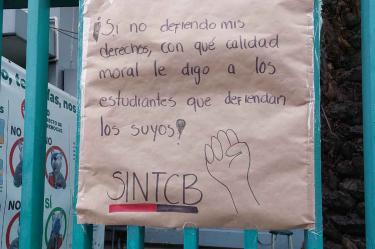 ¡Si no defiendo mis
derechos, con qué calidad
moral le digo a los
estudiantes que defiendan
los suyos!
SINTCB
NO
NO
SÍ